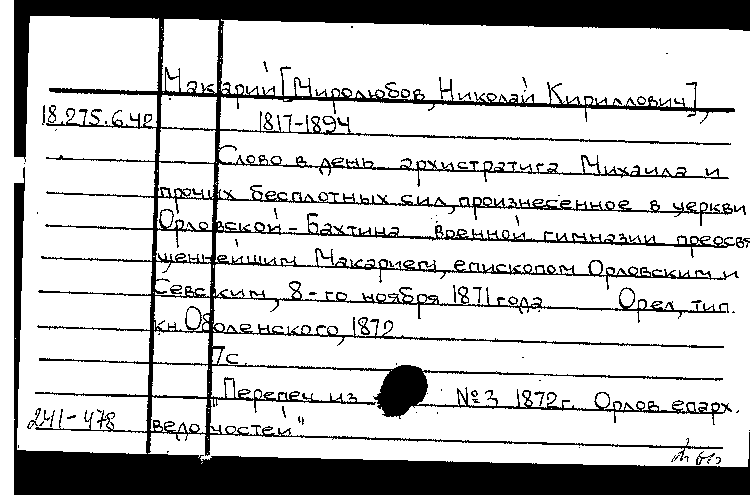 Макарий [Миролюбов, Николай Кириллович],
18.275.6.42 1817-1894
Слово в день архистратига Михаила и
прочих бесплотных сил, произнесенное в церкви
Орловской-Бахтина военной гимназии преосвя
щеннейшим Макарием, епископом Орловским и
Севским, 8-го ноября 1871 года Орел, тип.
кн. Оболенского, 1872
7с.
"Перепеч из № 3 1872г. Орлов епарх.
241-478 ведомостей"